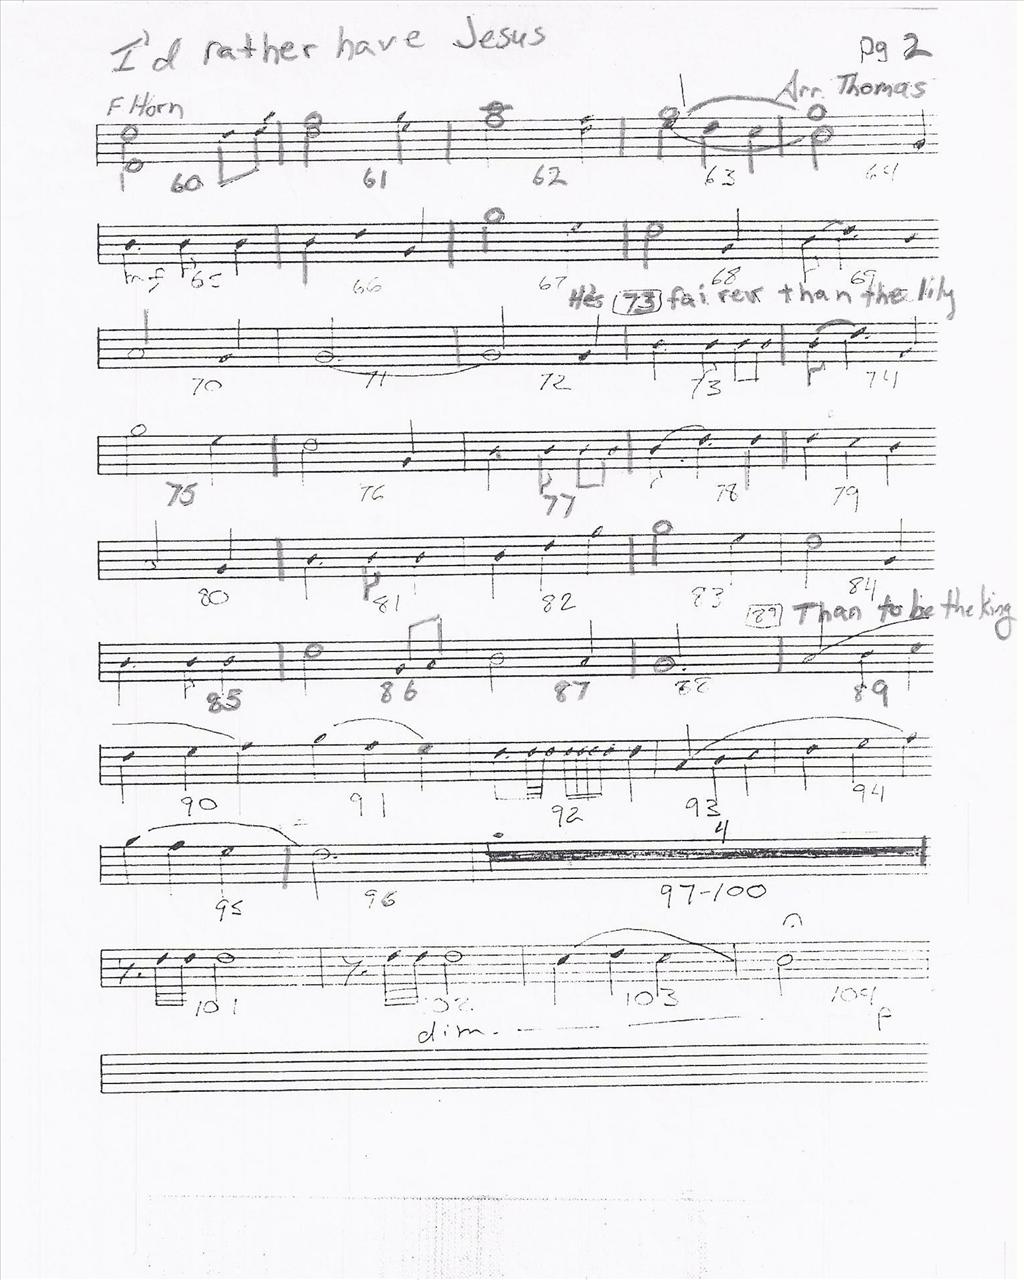 I'd rather have Jesus pg 2
F Horn Arr. Thomas
60 61 62 63 64
mf 65 66 67 68 69
He's 73 fairer than the lily
70 71 72 73 74
75 76 77 78 79
80 81 82 83 84
89 Than to be the king
85 86 87 88 89
90 91 92 93 94
4
95 96 97-100
101 102 103 104
dim. p